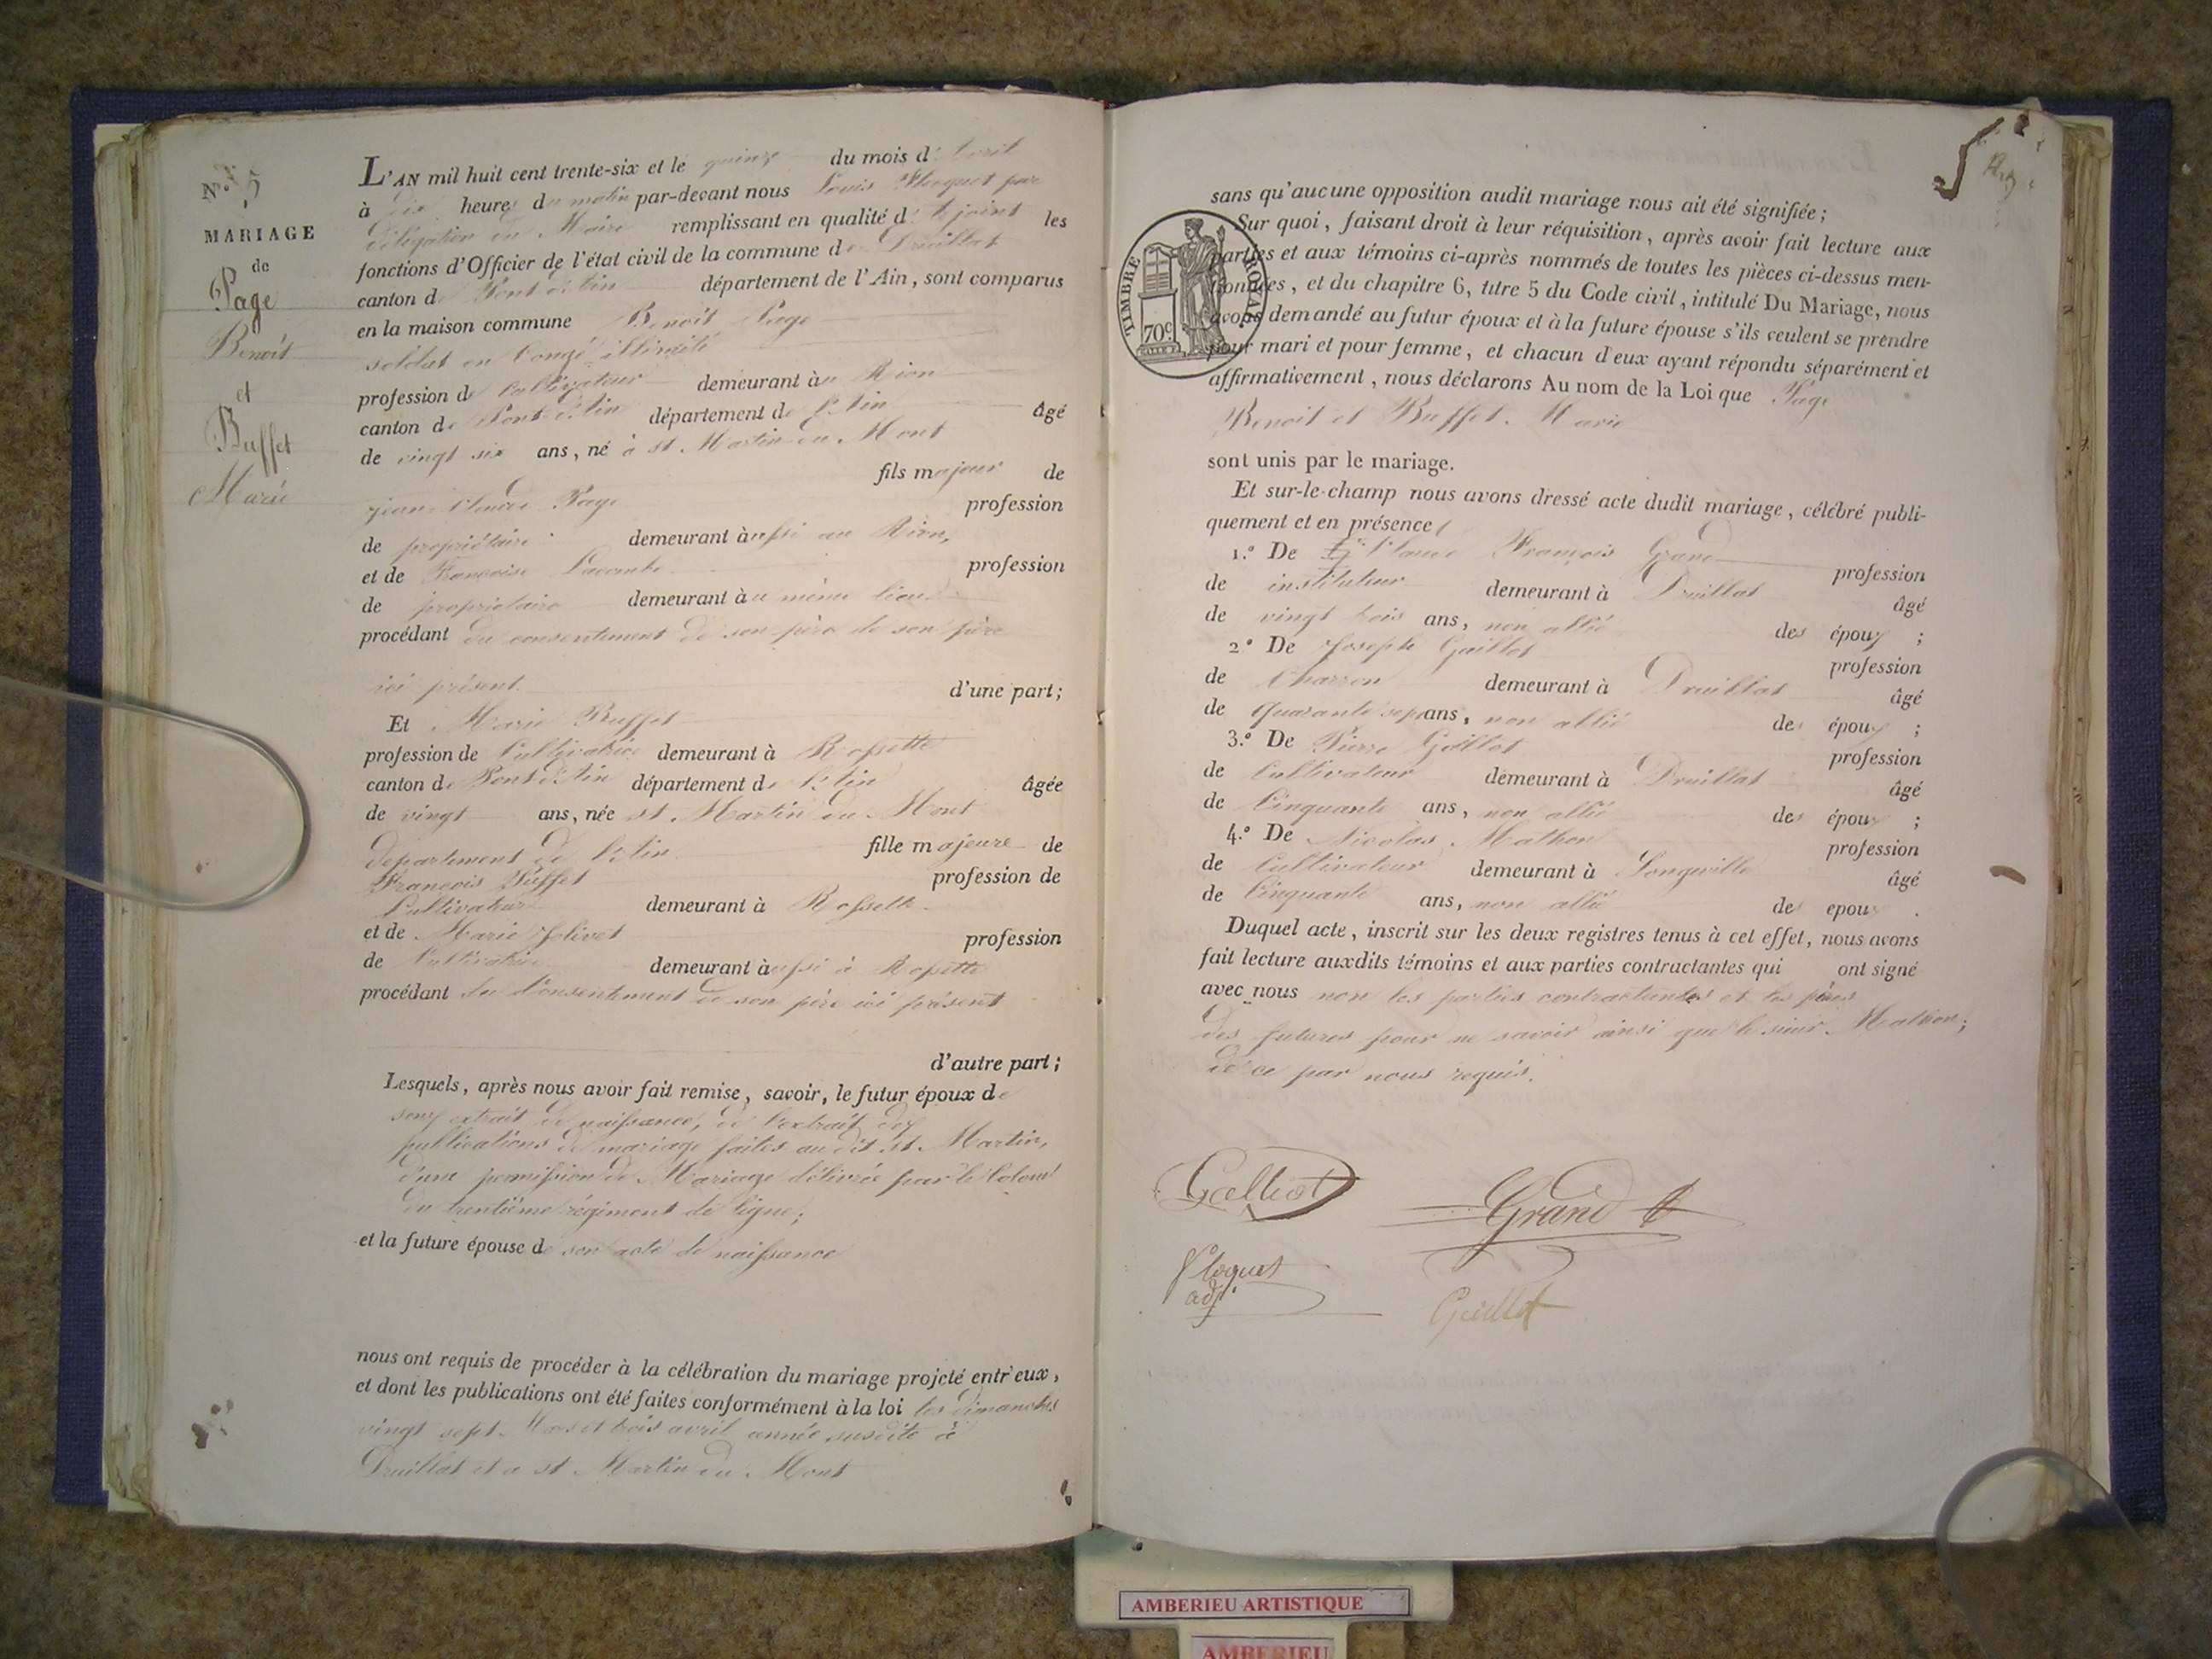 N.° 5
MARIAGE
de
Page
Benoit
et
Buffet
Marie
L'AN mil huit cent trente-six et le quinze du mois d'Avril
à dix heures du matin par-devant nous Louis Floquet par
délégation du Maire remplissant en qualité d'adjoint les
fonctions d'Officier de l'état civil de la commune de Druillat
canton de Pont d'Ain département de l'Ain, sont comparus
en la maison commune Benoit Page
soldat en Congé illimité
profession de Cultivateur demeurant au Rion
canton de Pont d'Ain département de l'Ain âgé
de vingt six ans, né à st. Martin du Mont
fils majeur de
jean Claude Page profession
de propriétaire demeurant aussi au Rion,
et de Françoise Lacombe profession
de propriétaire demeurant au même lieu
procédant du consentement de son père de son père
ici présent d'une part;
Et Marie Buffet
profession de Cultivatrice demeurant à Rossette
canton de Pont d'Ain département de l'Ain âgée
de vingt ans, née st. Martin du Mont
département de l'Ain fille majeure de
François Buffet profession de
Cultivateur demeurant à Rossette
et de Marie Jolivet profession
de Cultivatrice demeurant aussi à Rossette
procédant du Consentement de son père ici présent
d'autre part;
Lesquels, après nous avoir fait remise, savoir, le futur époux de
son extrait de naissance, de l'extrait des
publications de mariage faites au dit st. Martin,
d'une permission de Mariage délivrée par le Colonel
du trentième régiment de ligne;
et la future épouse de son acte de naissance
nous ont requis de procéder à la célébration du mariage projeté entr'eux,
et dont les publications ont été faites conformément à la loi les dimanches
vingt sept Mars et trois avril année susdite à
Druillat et a st. Martin du Mont
sans qu'aucune opposition audit mariage nous ait été signifiée;
Sur quoi, faisant droit à leur réquisition, après avoir fait lecture aux
parties et aux témoins ci-après nommés de toutes les pièces ci-dessus men-
tionnées, et du chapitre 6, titre 5 du Code civil, intitulé Du Mariage, nous
avons demandé au futur époux et à la future épouse s'ils veulent se prendre
pour mari et pour femme, et chacun d'eux ayant répondu séparément et
affirmativement, nous déclarons Au nom de la Loi que Page
Benoit et Buffet Marie
TIMBRE ROYAL
70c
sont unis par le mariage.
Et sur-le-champ nous avons dressé acte dudit mariage, célébré publi-
quement et en présence
1.° De Claude François Grand profession
de instituteur demeurant à Druillat âgé
de vingt trois ans, non allié des époux ;
2.° De Joseph Gaillot profession
de Charron demeurant à Druillat âgé
de quarante sept ans, non allié des époux ;
3.° De Pierre profession
de Cultivateur demeurant à Druillat âgé
de Cinquante ans, non allié des époux ;
4.° De Nicolas Mathon profession
de Cultivateur demeurant à Longeville âgé
de Cinquante ans, non allié des epoux .
Duquel acte, inscrit sur les deux registres tenus à cet effet, nous avons
fait lecture auxdits témoins et aux parties contractantes qui ont signé
avec nous non les parties contractantes et les pères
des futures pour ne savoir ainsi que le sieur Mathon;
de ce par nous requis.
Grand
Floquet
adj.
AMBERIEU ARTISTIQUE
AMBERIEU